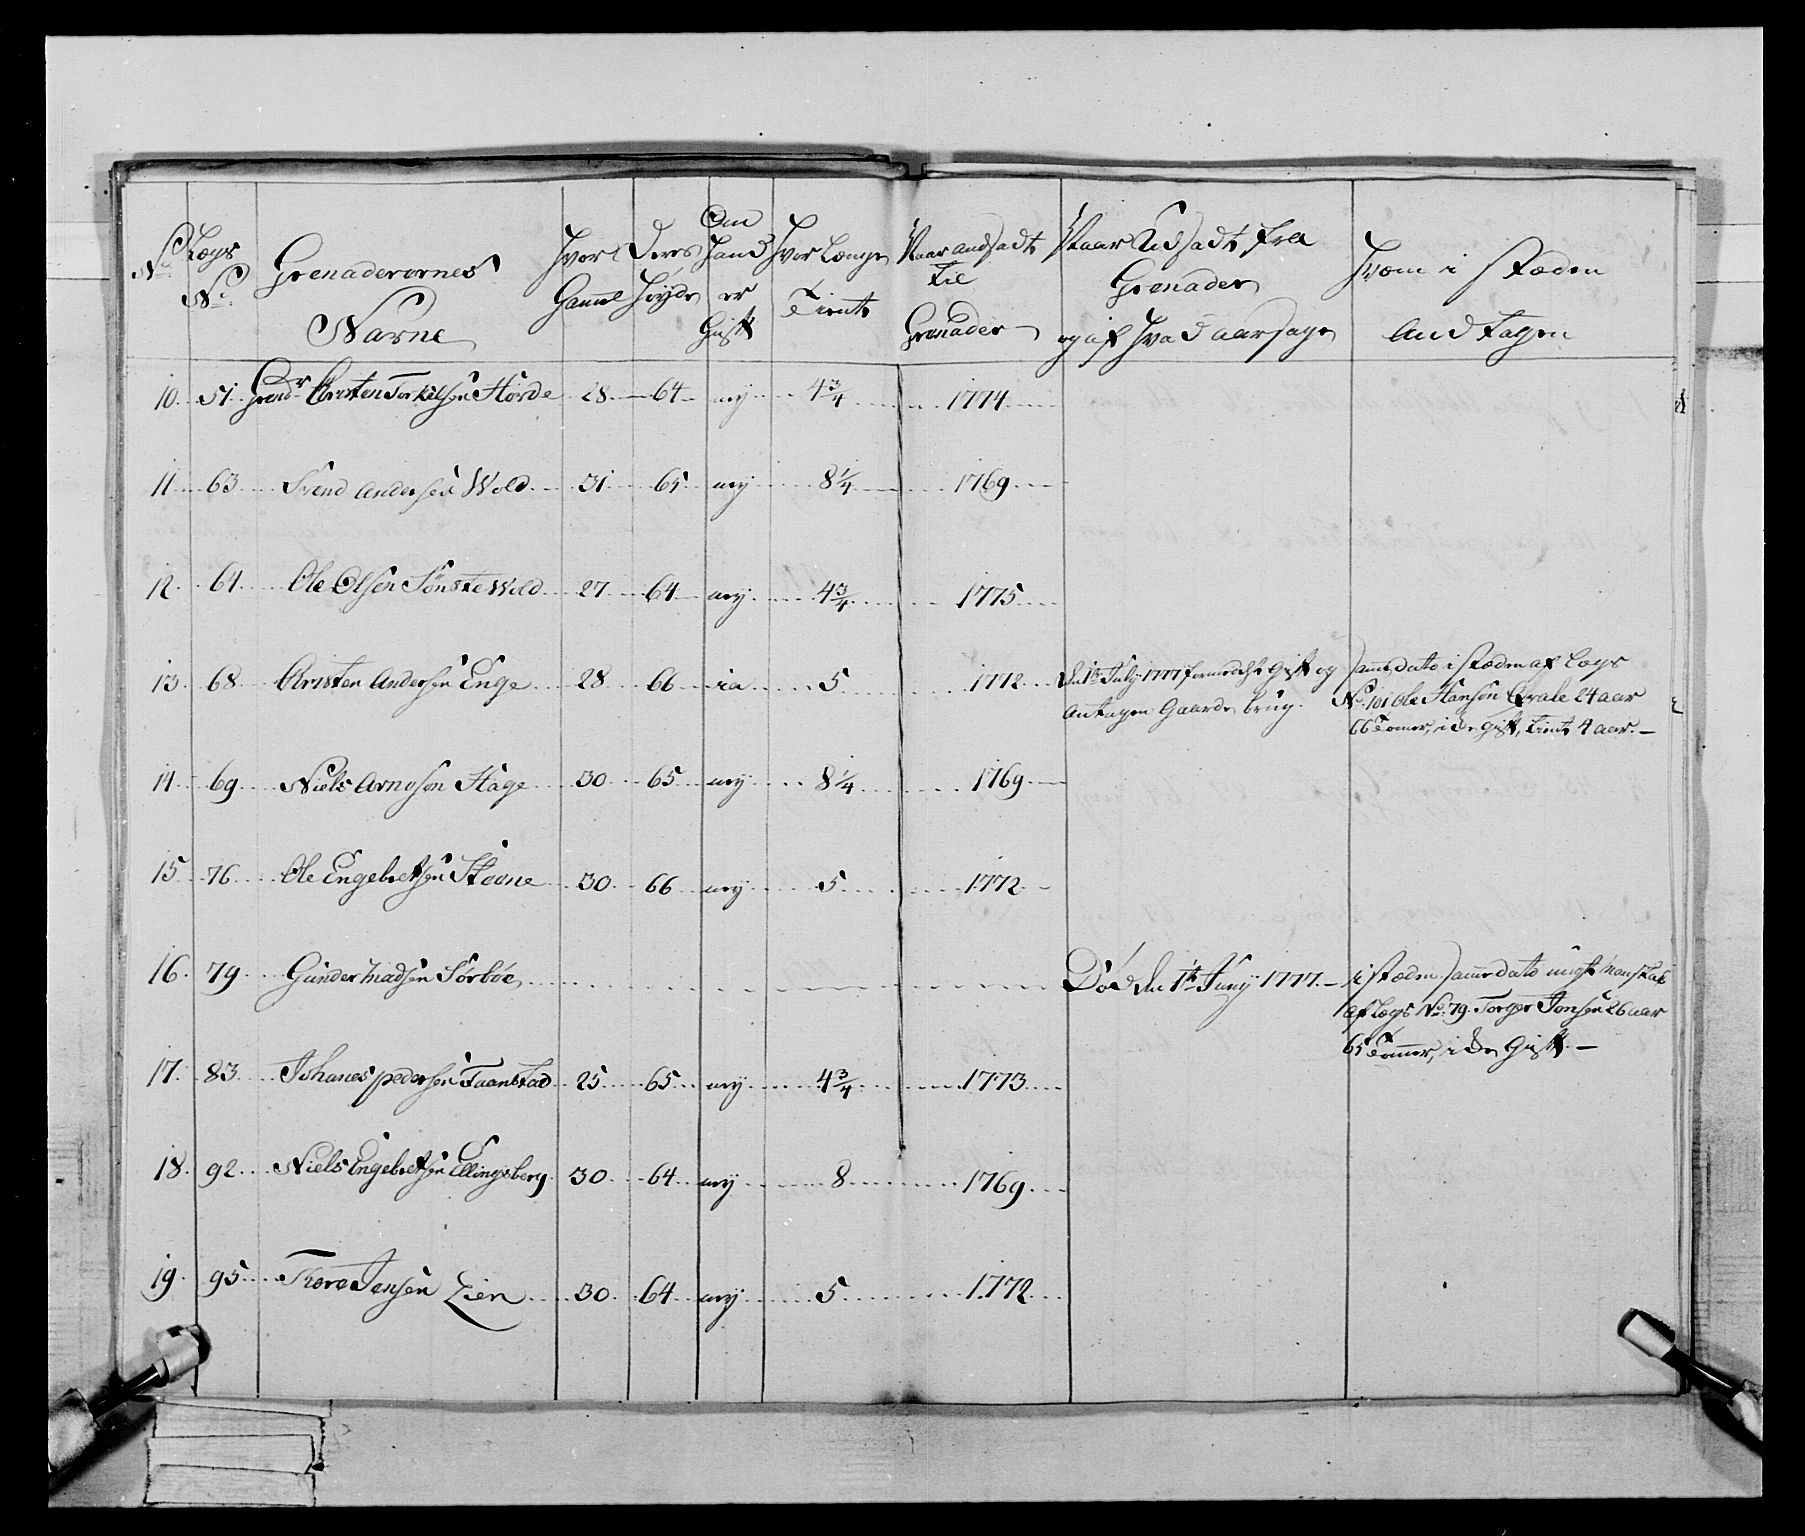 No. Lægs No. Grenaderernes Nafne Hvor Gamel Deres Høyde Om Hand er Gift Hvor Længe Tient Naar andsadt til Grenader Naar Udsadt fra Grenader og af Hvad aarsage Hvem i stæden And tagen
10 51 Grendr Christen Torkelsen Horde 28 64 ney 4 3/4 1774
11 63 Svend Andersen Wold 31 65 ney 8 1/4 1769
12 64 Ole Olsen Sønste Wold 27 64 ney 4 3/4 1775
13 68 Kristen Andersen Enge 28 66 ia 5 1772 den 1te July 1777 formedelst Gift og Samedato i stæden af Lægs
Antagen Gaards brug. No. 101 Ole Hansøn Qvale 24 aar
66 Tomer, icke Gift, tient 4 aar.
14 69 Niels Arnesøn Hage 30 65 ney 8 1/4 1769
15 76 Ole Engebretsen 30 66 ney 5 1772
16 79 Gunder Madsen Sørbøe Død den 1te Juny 1777. i stæden Samedato ungt Manskab
af Lægs No. 79. Torger Jonsen 26 aar
65 Tommer, icke Gift.
17 83 Johanes Pedersen 25 65 ney 4 3/4 1773
18 92 Niels Engebretsen Ellingsberg 30 64 ney 8 1769
19 95 Tore Jensen Lien 30 64 ney 5 1772